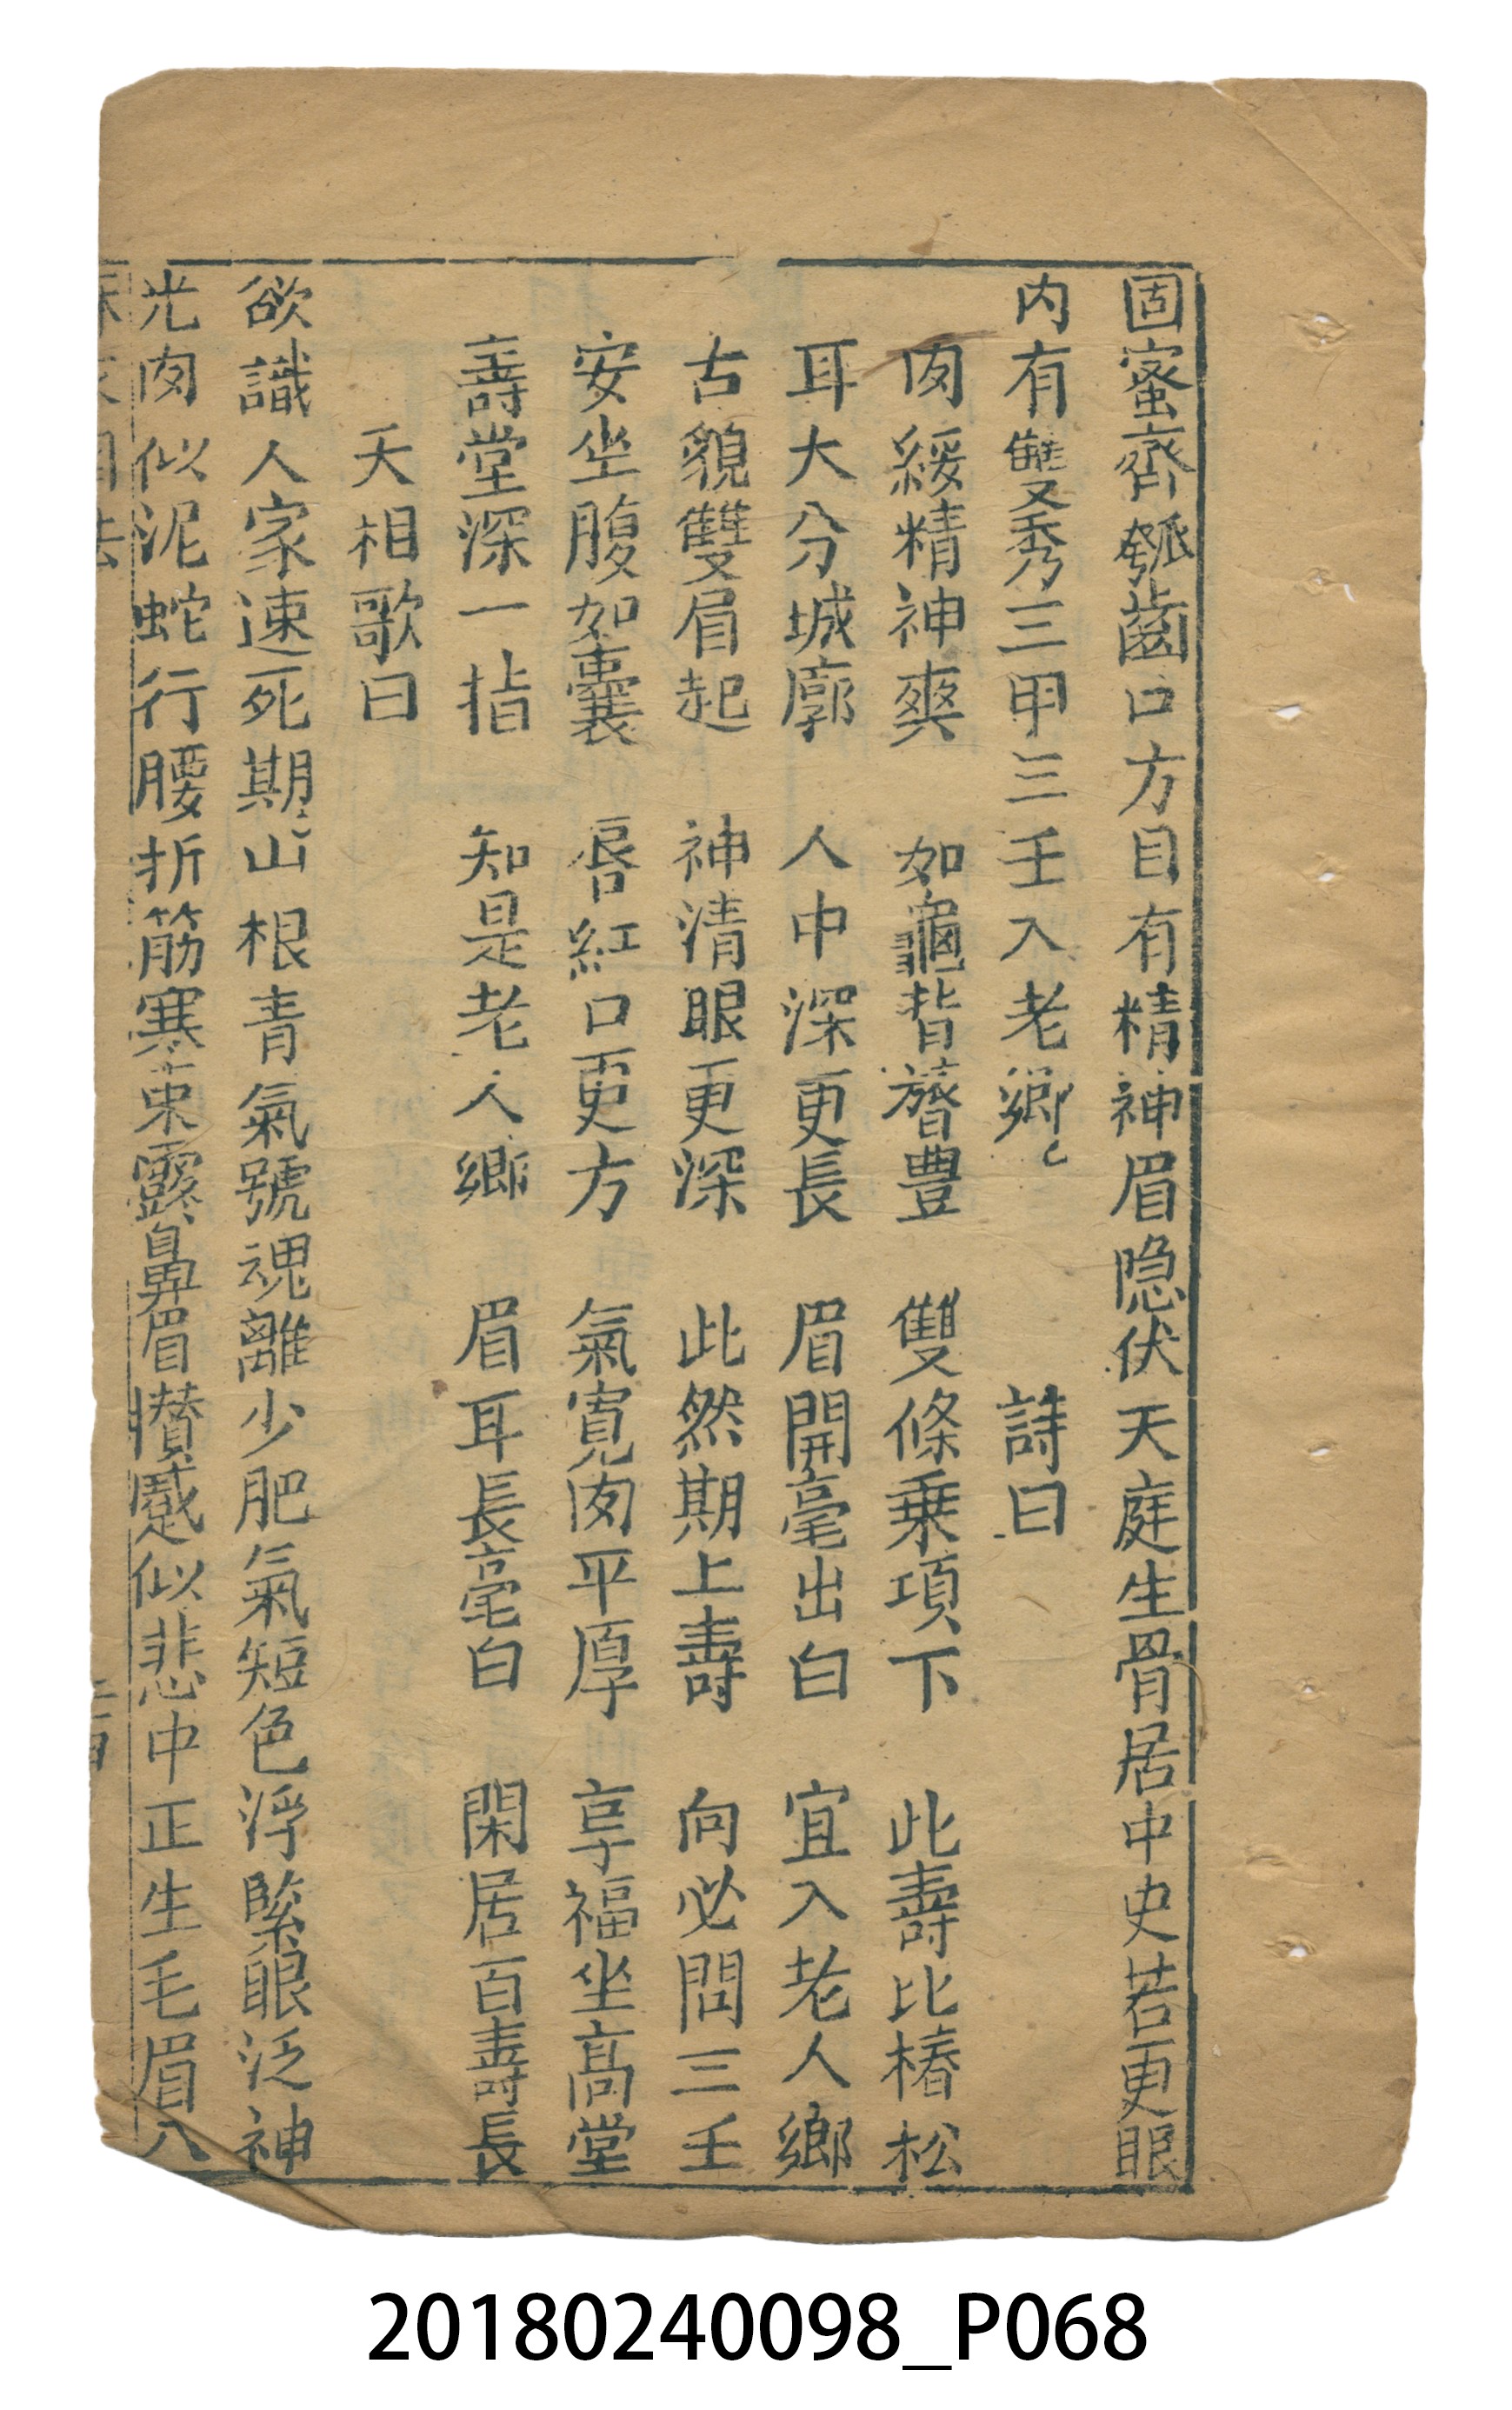 固蜜齊瓠齒口方目有精神眉隐伏天庭生骨居中史若更眼
内有雙秀三甲三壬入老鄉 詩曰
肉緩精神爽 如龜背䯱豊 雙條乗項下 此壽比椿松
耳大分城廓 人中深更長 眉開毫出白 宜入老人鄉
古貌雙眉起 神清眼更深 此然期上壽 向必問三壬
安坐腹如囊 唇紅口更方 氣寛肉平厚 享福坐高堂
壽堂深一指 知是老人鄉 眉耳長毫白 閑居百壽長
夭相歌曰
欲識人家速死期山根青氣號魂離少肥氣短色浮緊眼泛神
光肉似泥蛇行腰折筋寒束露鼻眉攅蹙似悲中正生毛眉八
20180240098_P068